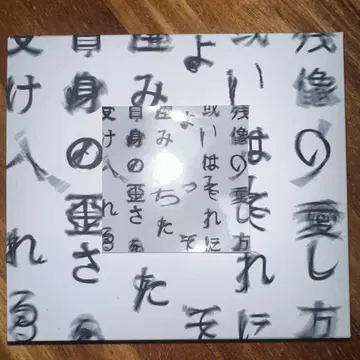 残像の愛し方
或いはそれに
よって
産みちた
自身の歪さを
受け入れる
残像の愛し方
或いはそれに
よって
産みちた
自身の歪さを
受け入れる